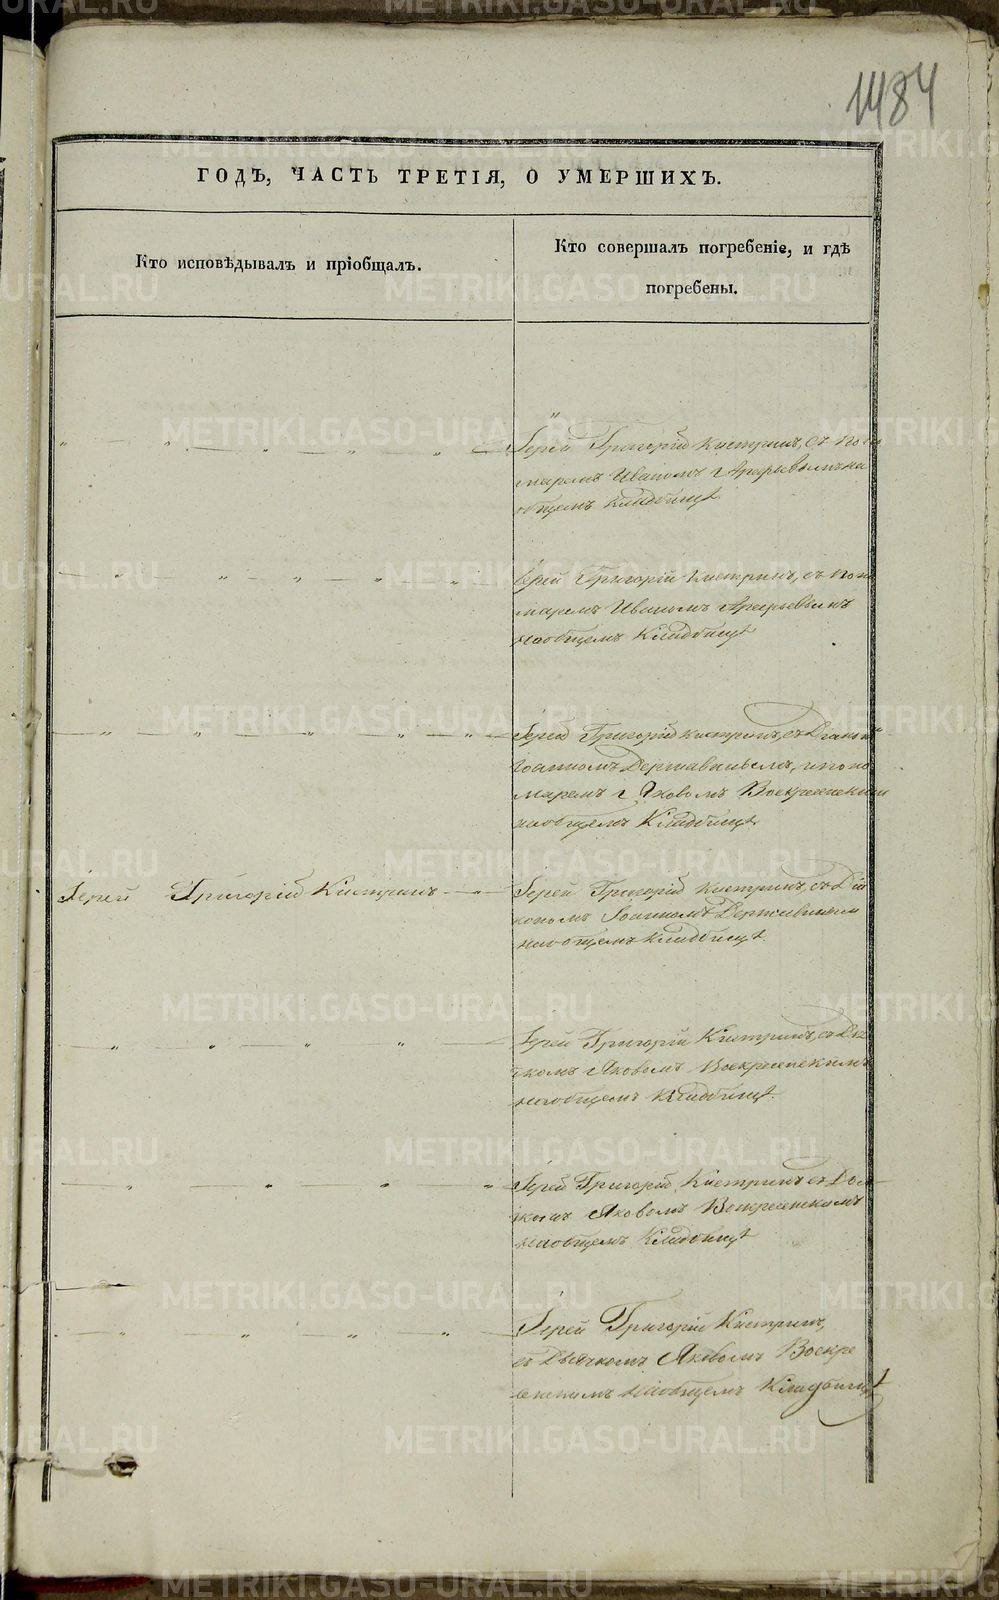 1484
ГОДЪ, ЧАСТЬ ТРЕТІЯ, О УМЕРШИХЪ.
Кто исповѣдывалъ и пріобщалъ.
Кто совершалъ погребеніе, и гдѣ
погребены.
Іерей Григорій Кистринъ, съ Поно
маремъ Иваномъ Арефьевымъ на
общемъ кладбищѣ
Іерей Григорій Кистринъ, съ поно
маремъ Иваномъ Арефьевымъ
на общемъ Кладбищѣ
Іерей Григорій Кистринъ, съ Діакономъ
Іоанномъ Державинымъ, и поно
маремъ Яковомъ Воскресенскимъ
на общемъ Кладбищѣ
Іерей Григорій Кистринъ
Іерей Григорій Кистринъ, съ Діа
кономъ Іоанномъ Державинымъ
на общемъ кладбищѣ.
Іерей Григорій Кистринъ, съ Дья
комъ Яковомъ Воскресенскимъ
на общемъ Кладбищѣ.
Іерей Григорій Кистринъ съ
Яковомъ Воскресенскимъ
на общемъ Кладбищѣ
Іерей Григорій Кистринъ,
съ Дьячкомъ Яковомъ Воскре
сенскимъ на общемъ Кладбищѣ
METRIKI.GASO-URAL.RU